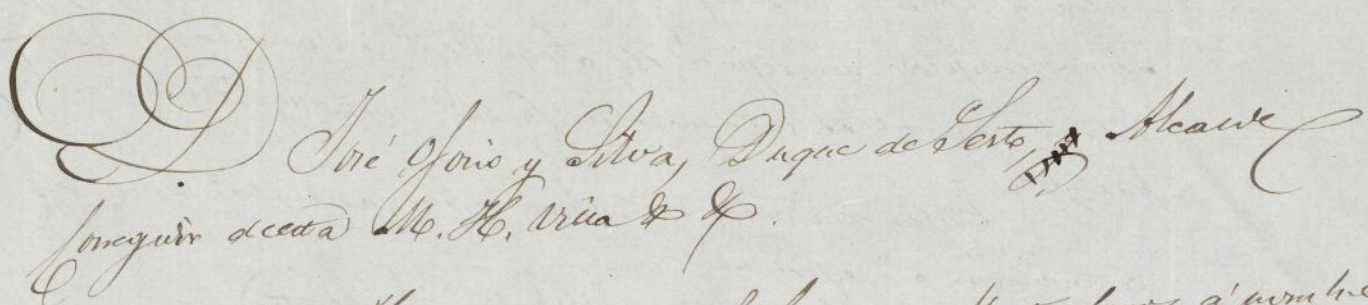 D. José Osorio y Silva, Duque de Sesto, Alcalde
Corregidor de esta M. H. Villa & &.